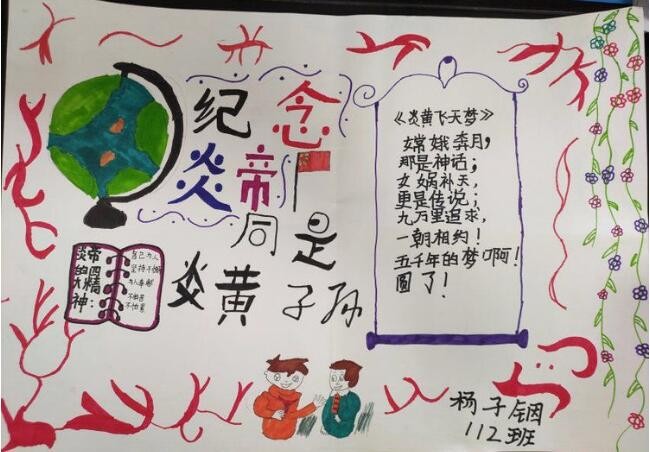 纪念
炎帝
同是
炎黄子孙
《炎黄飞天梦》
嫦娥奔月，
那是神话；
女娲补天，
更是传说，
九万里追求，
一朝相约！
五千年的梦啊！
圆了！
炎帝
的四
大精
神：
杨子铟
112班